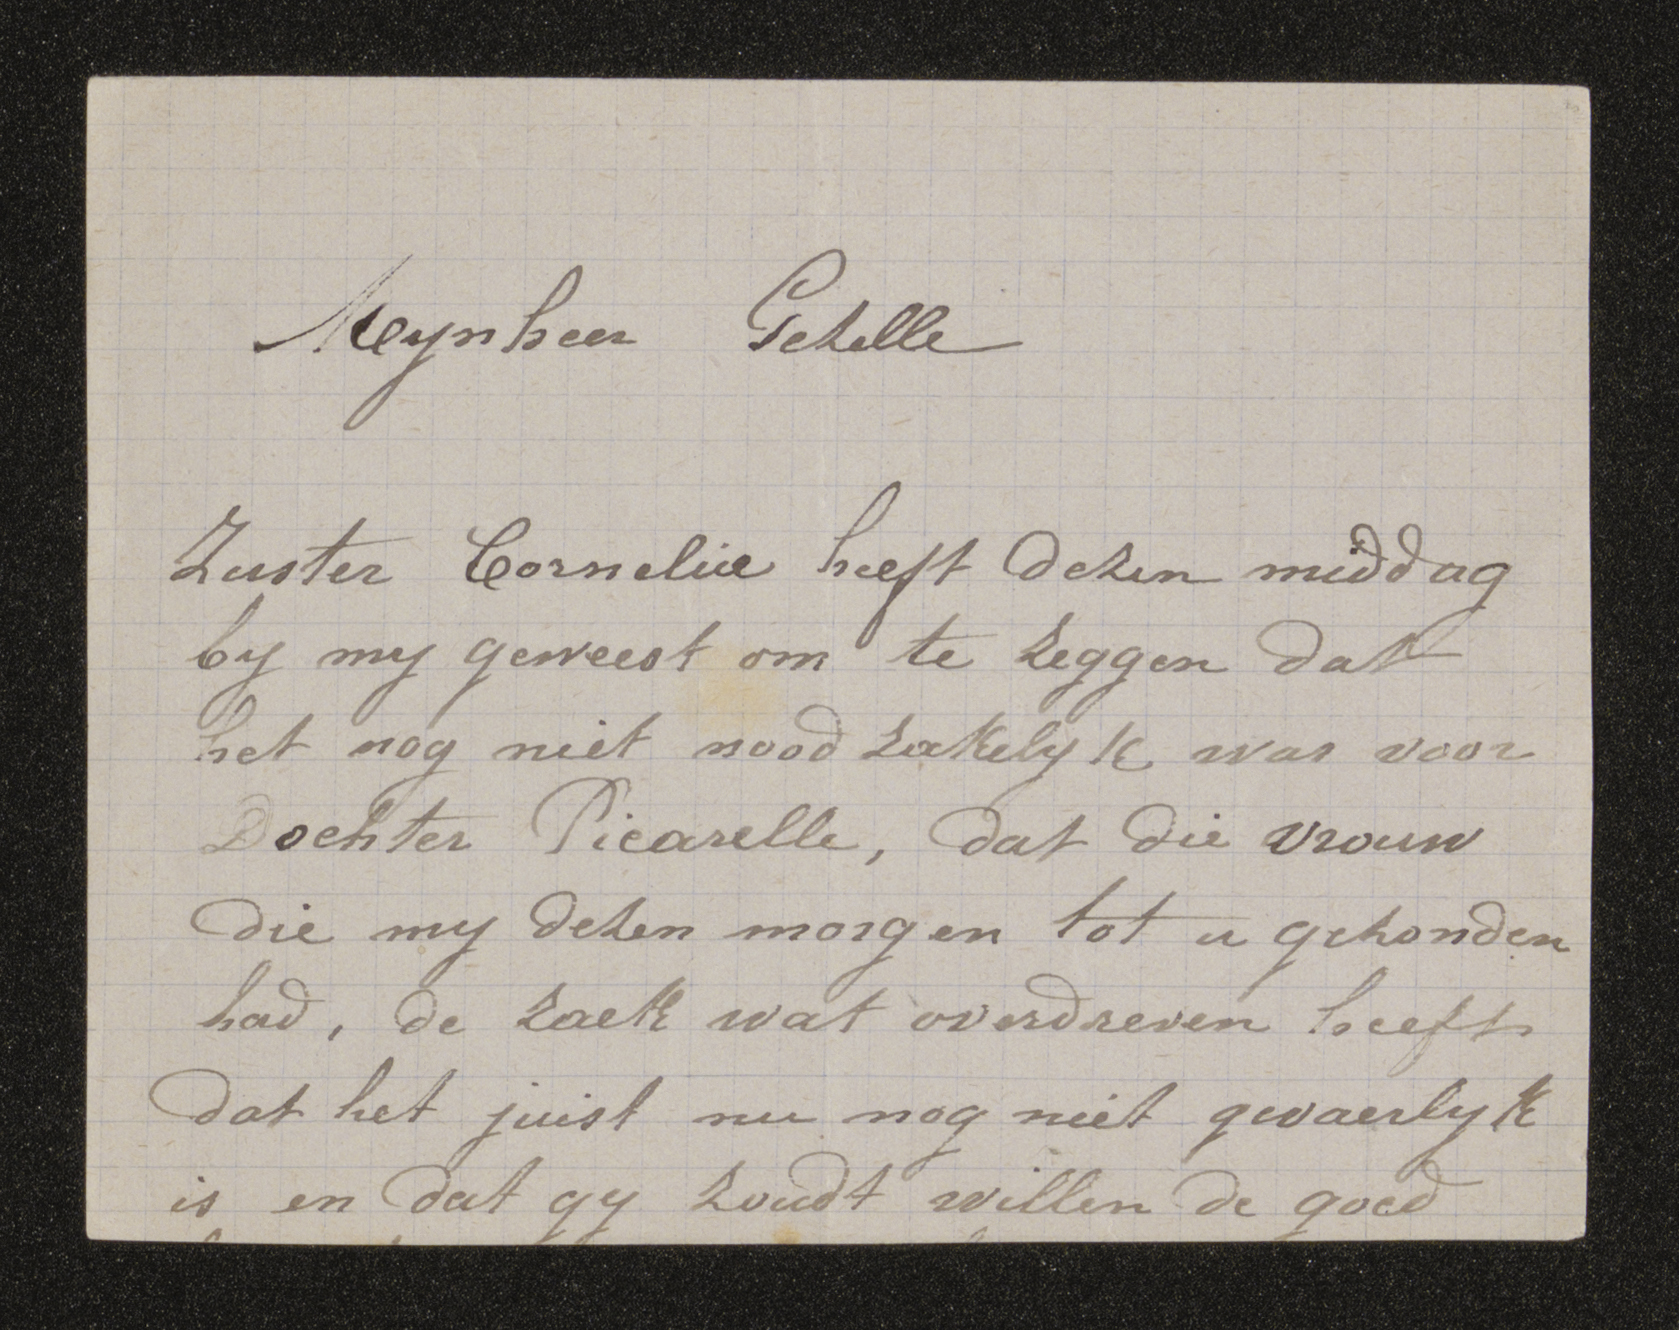 Meynheer Gezelle
Zuster Cornelie heeft dezen middag
by my geweest om te zeggen dat
het nog niet noodzakelyk was voor
Dochter Picarelle, dat die vrouw
die my dezen morgen tot u gezonden
had, de zaek wat overdreven heeft
dat het juist nu nog niet gevaerlyk
is en dat gy zoudt willen de goed